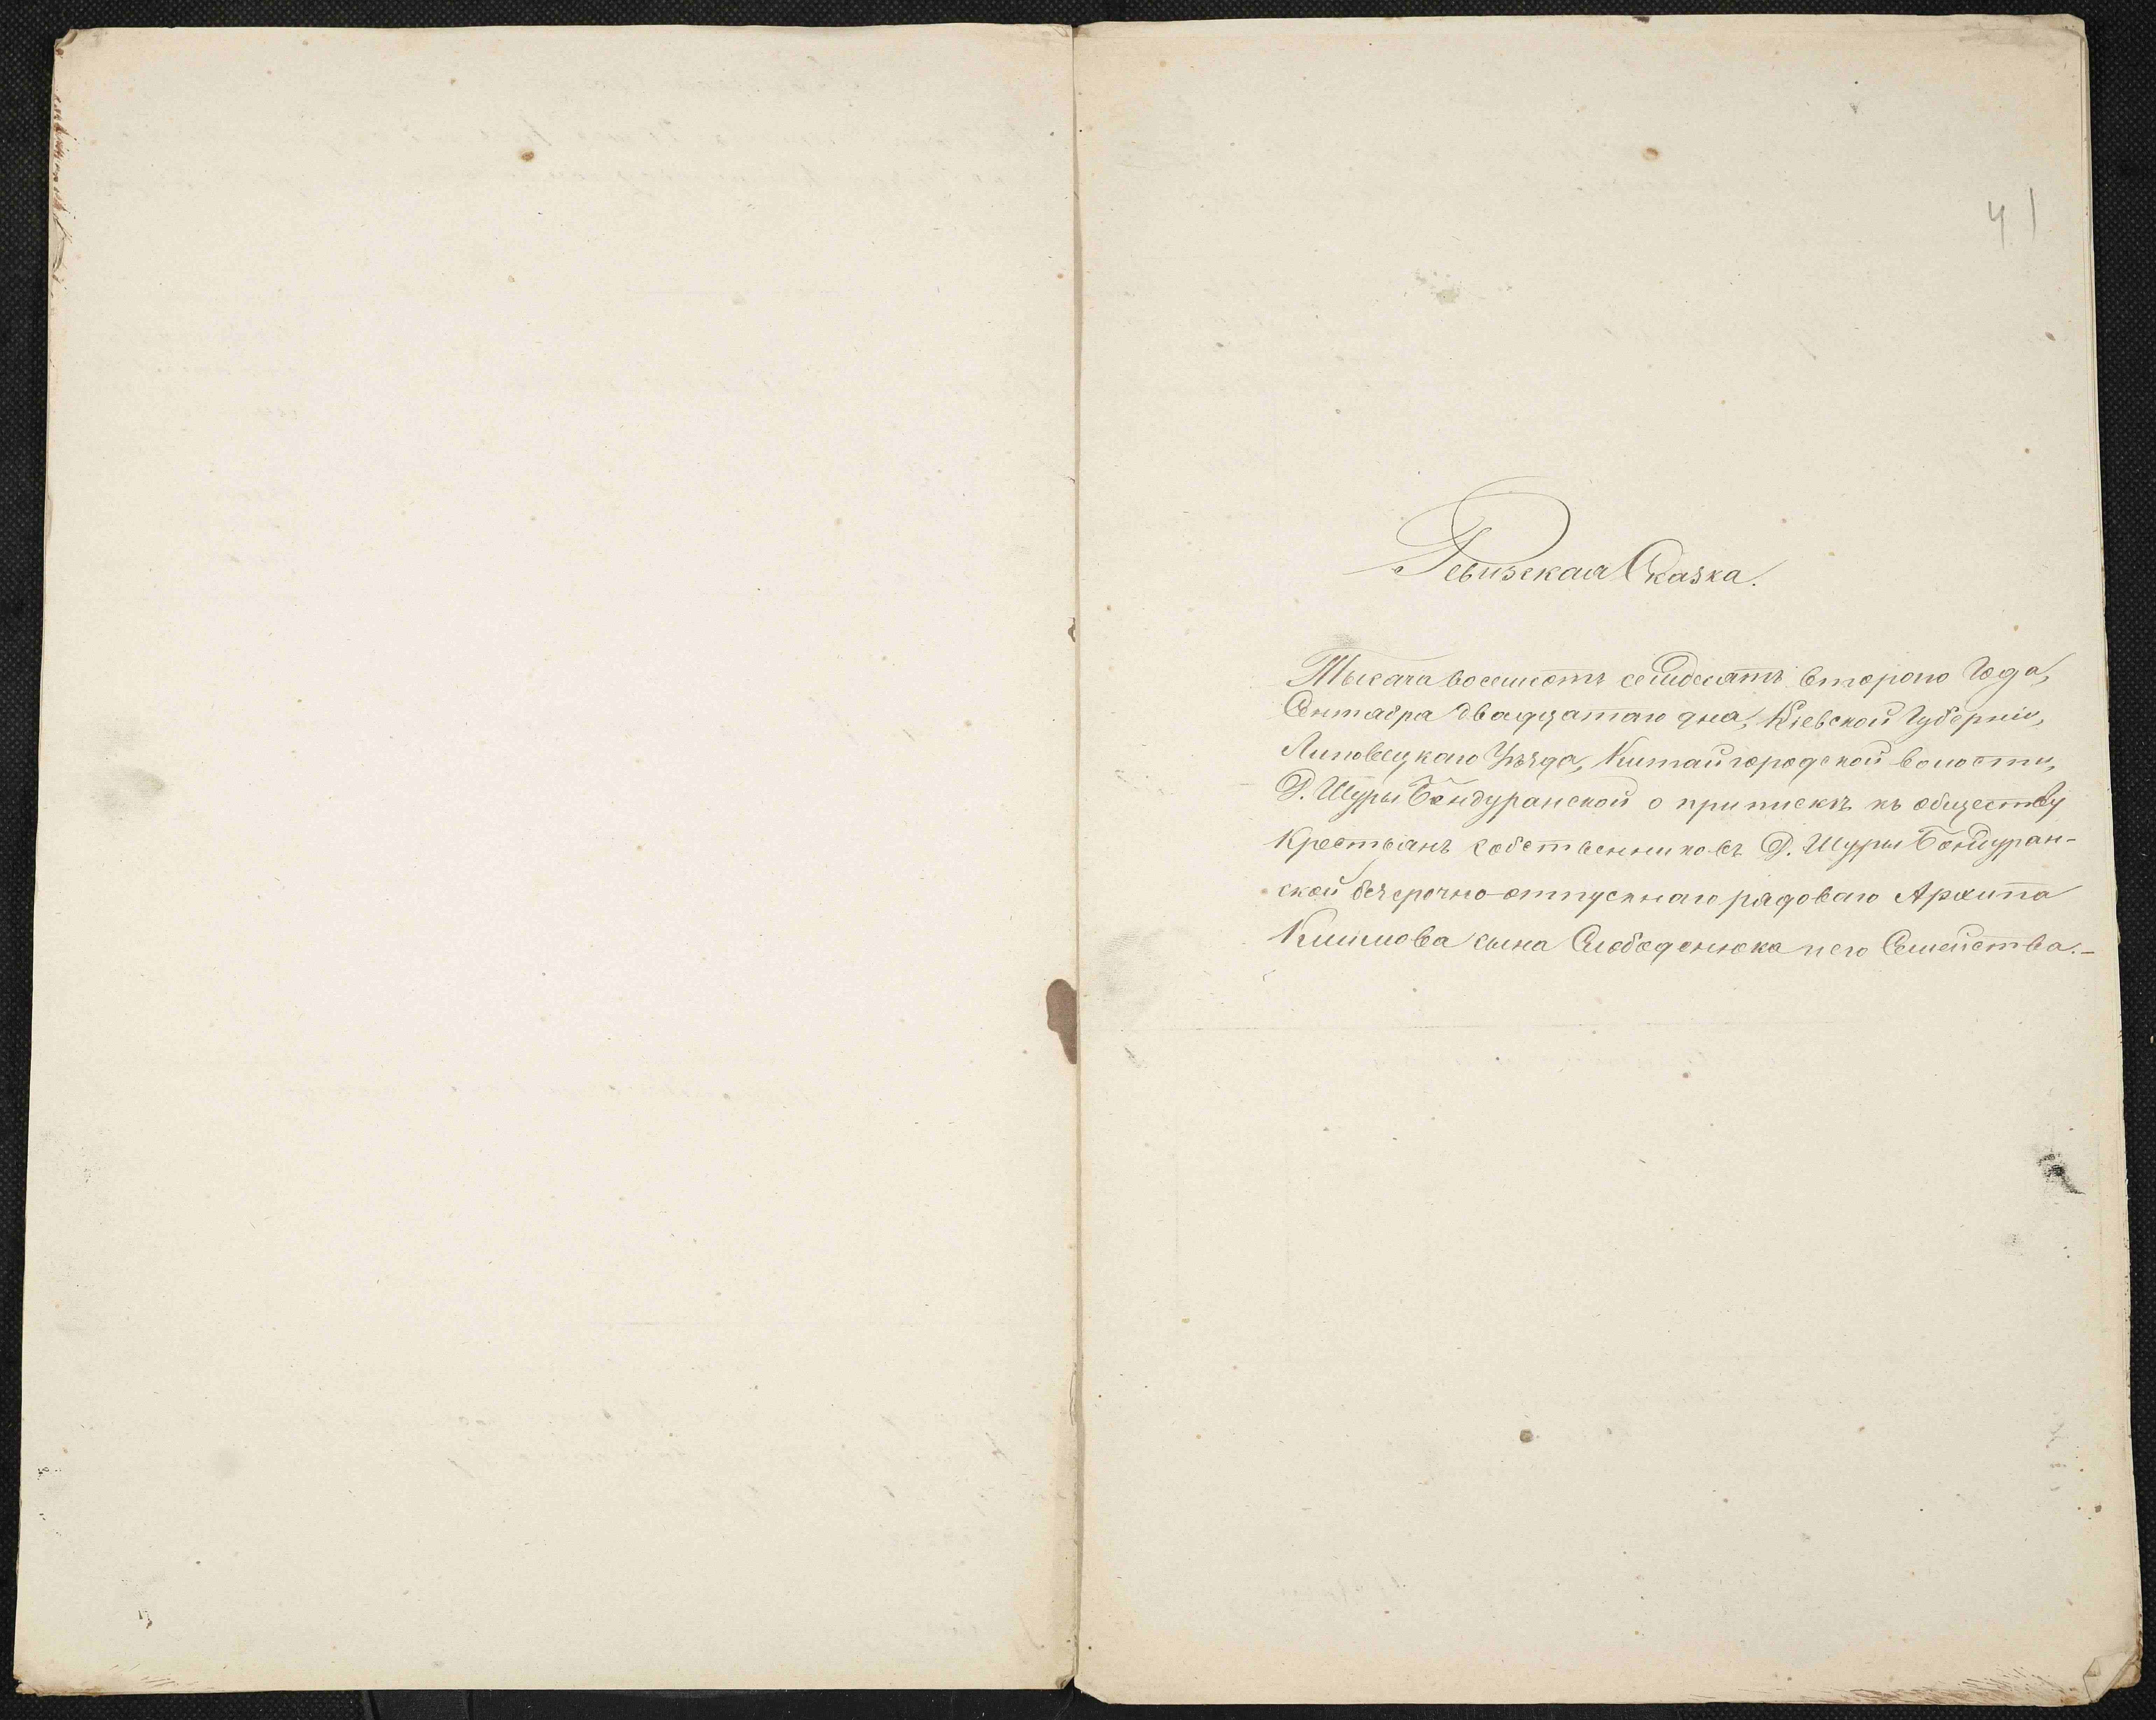 41
Ревизская Сказка.
Тысяча восемсотъ семдесятъ втораго Года,
Сентября двадцатаго дня, Кіевской Губерніи,
Липовецкаго Уѣзда, Китайгородской волости,
Д. Шуры Бондуранской о припискѣ къ обществу
Крестьянъ собственниковъ Д. Шуры Бондуран-
ской безсрочно-отпускнаго рядоваго Архипа
Климова сына Слободенюка и его Семейства.-